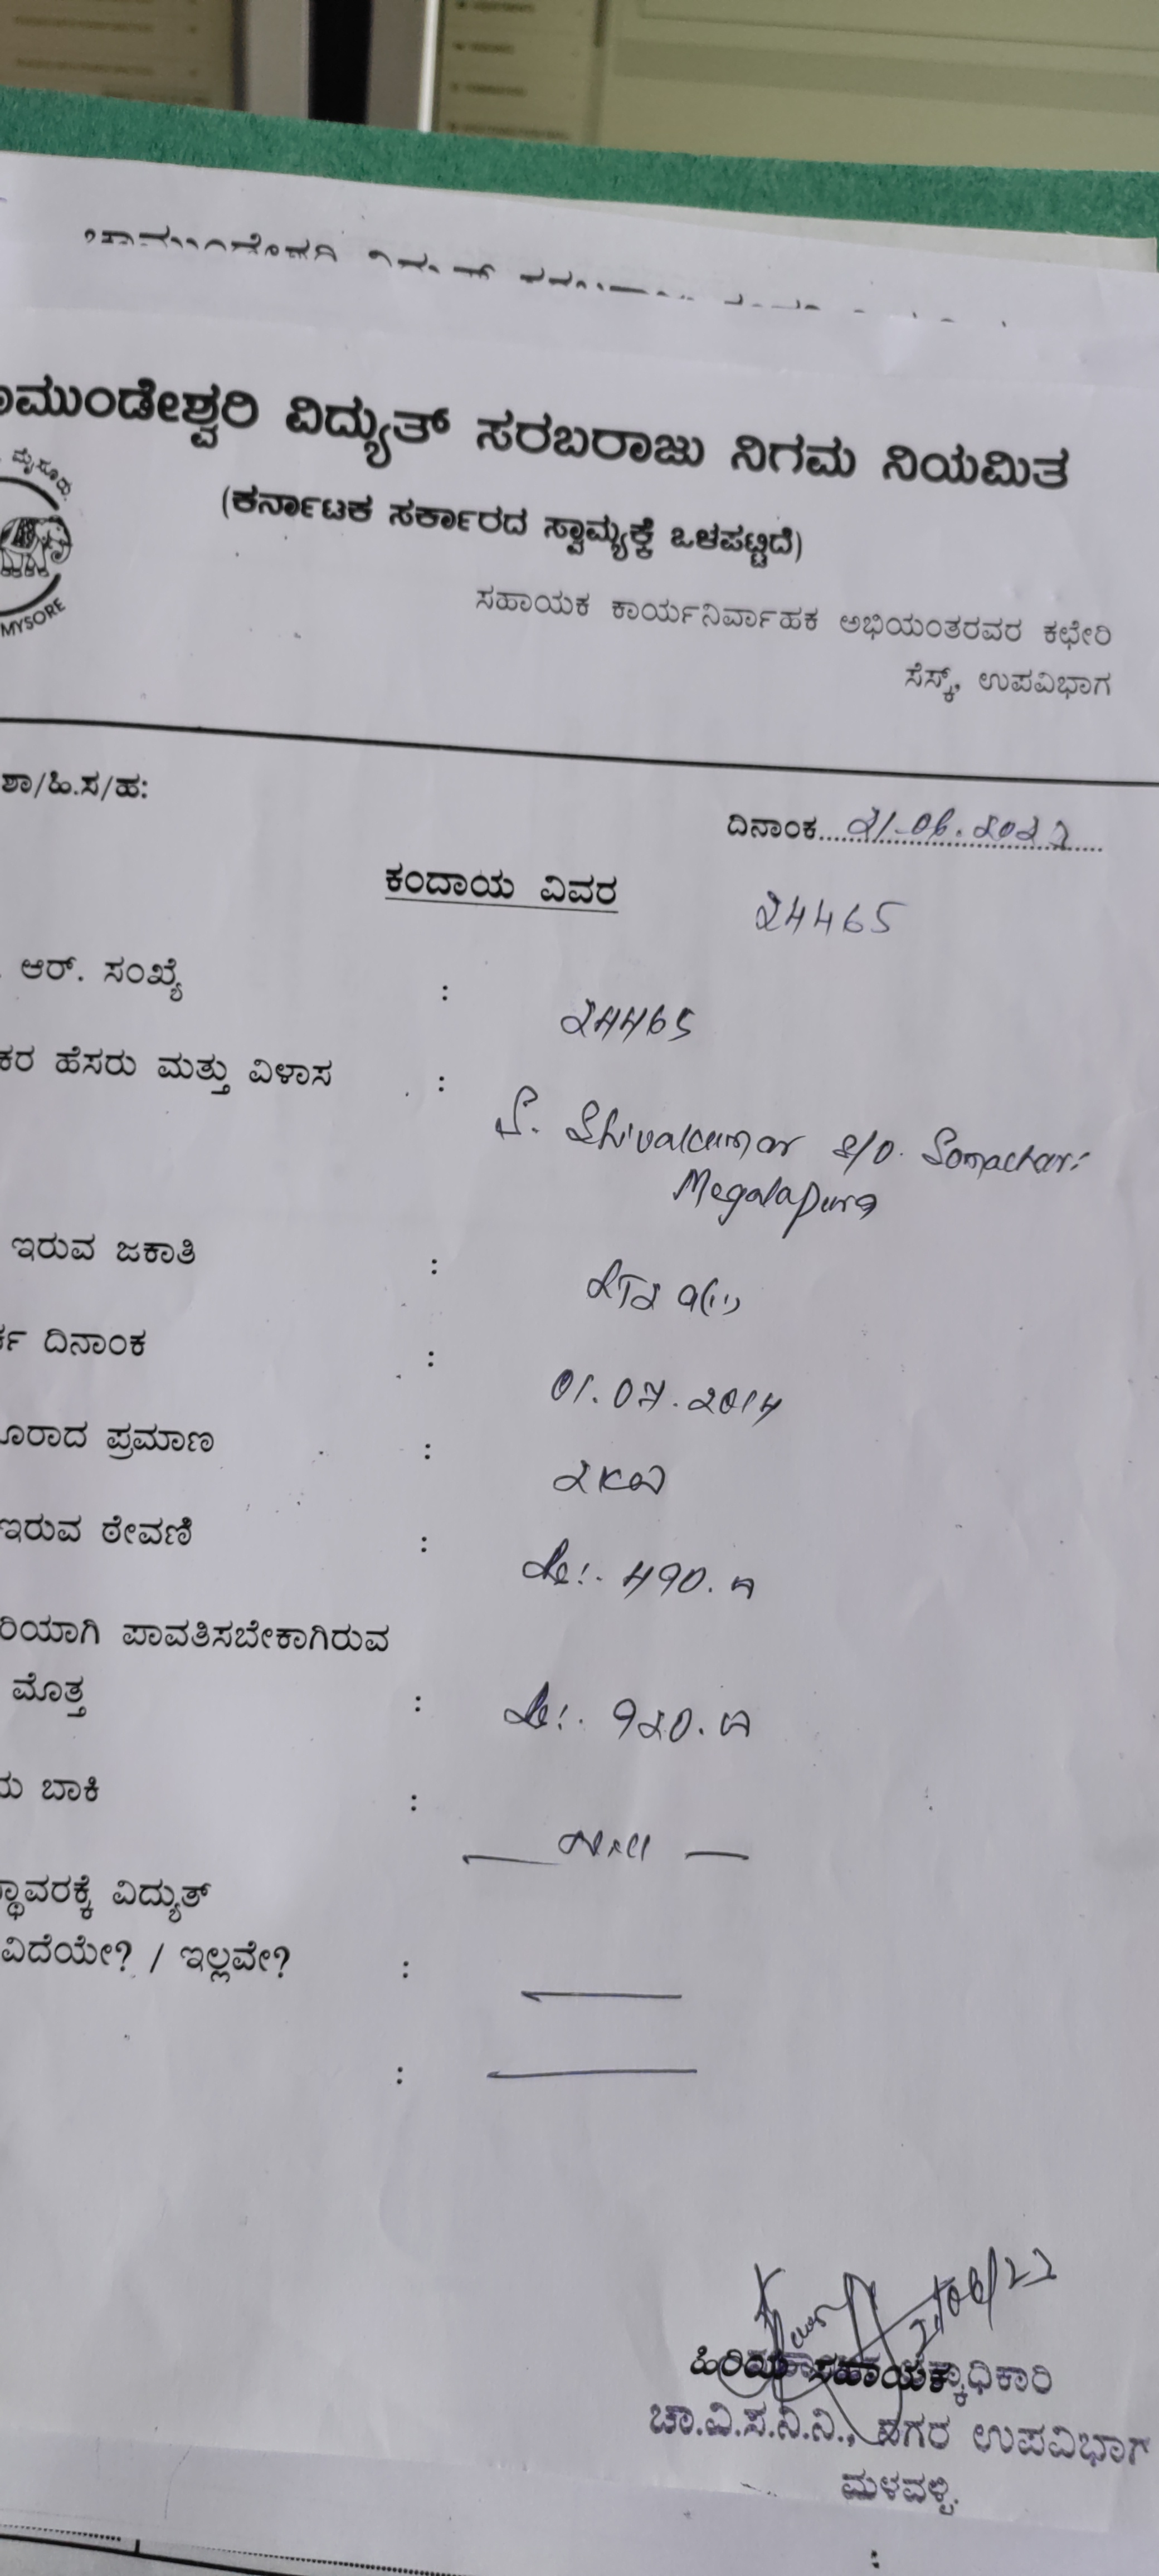 ಮುಂಡೇಶ್ವರಿ ವಿದ್ಯುತ್ ಸರಬರಾಜು ನಿಗಮ ನಿಯಮಿತ
(ಕರ್ನಾಟಕ ಸರ್ಕಾರದ ಸ್ವಾಮ್ಯಕ್ಕೆ ಒಳಪಟ್ಟಿದೆ)
ಮೈಸೂರು.
MYSORE
ಸಹಾಯಕ ಕಾರ್ಯನಿರ್ವಾಹಕ ಅಭಿಯಂತರವರ ಕಛೇರಿ
ಸೆಸ್ಕ್, ಉಪವಿಭಾಗ
ಶಾ/ಹಿ.ಸ/ಹ:
ದಿನಾಂಕ....21-06.2022....
ಕಂದಾಯ ವಿವರ 24465
ಆರ್. ಸಂಖ್ಯೆ : 24465
ಕರ ಹೆಸರು ಮತ್ತು ವಿಳಾಸ : S. Shivakumar S/O. Somachari
Megalapura
ಇರುವ ಜಕಾತಿ : LT2 a(ii)
ದಿನಾಂಕ : 01.07.2014
ೂರಾದ ಪ್ರಮಾಣ : 2KW
ಇರುವ ಠೇವಣಿ : Rs:. 490.00
ರಿಯಾಗಿ ಪಾವತಿಸಬೇಕಾಗಿರುವ
ಮೊತ್ತ : Rs:. 920.00
ಬಾಕಿ : — Nill —
ಸ್ಥಾವರಕ್ಕೆ ವಿದ್ಯುತ್
ವಿದೆಯೇ? / ಇಲ್ಲವೇ? : —
: —
21/06/22
ಹಿರಿಯ ಸಹಾಯಕ
ಚಾ.ವಿ.ಸ.ನಿ.ನಿ., ನಗರ ಉಪವಿಭಾಗ
ಮಳವಳ್ಳಿ.